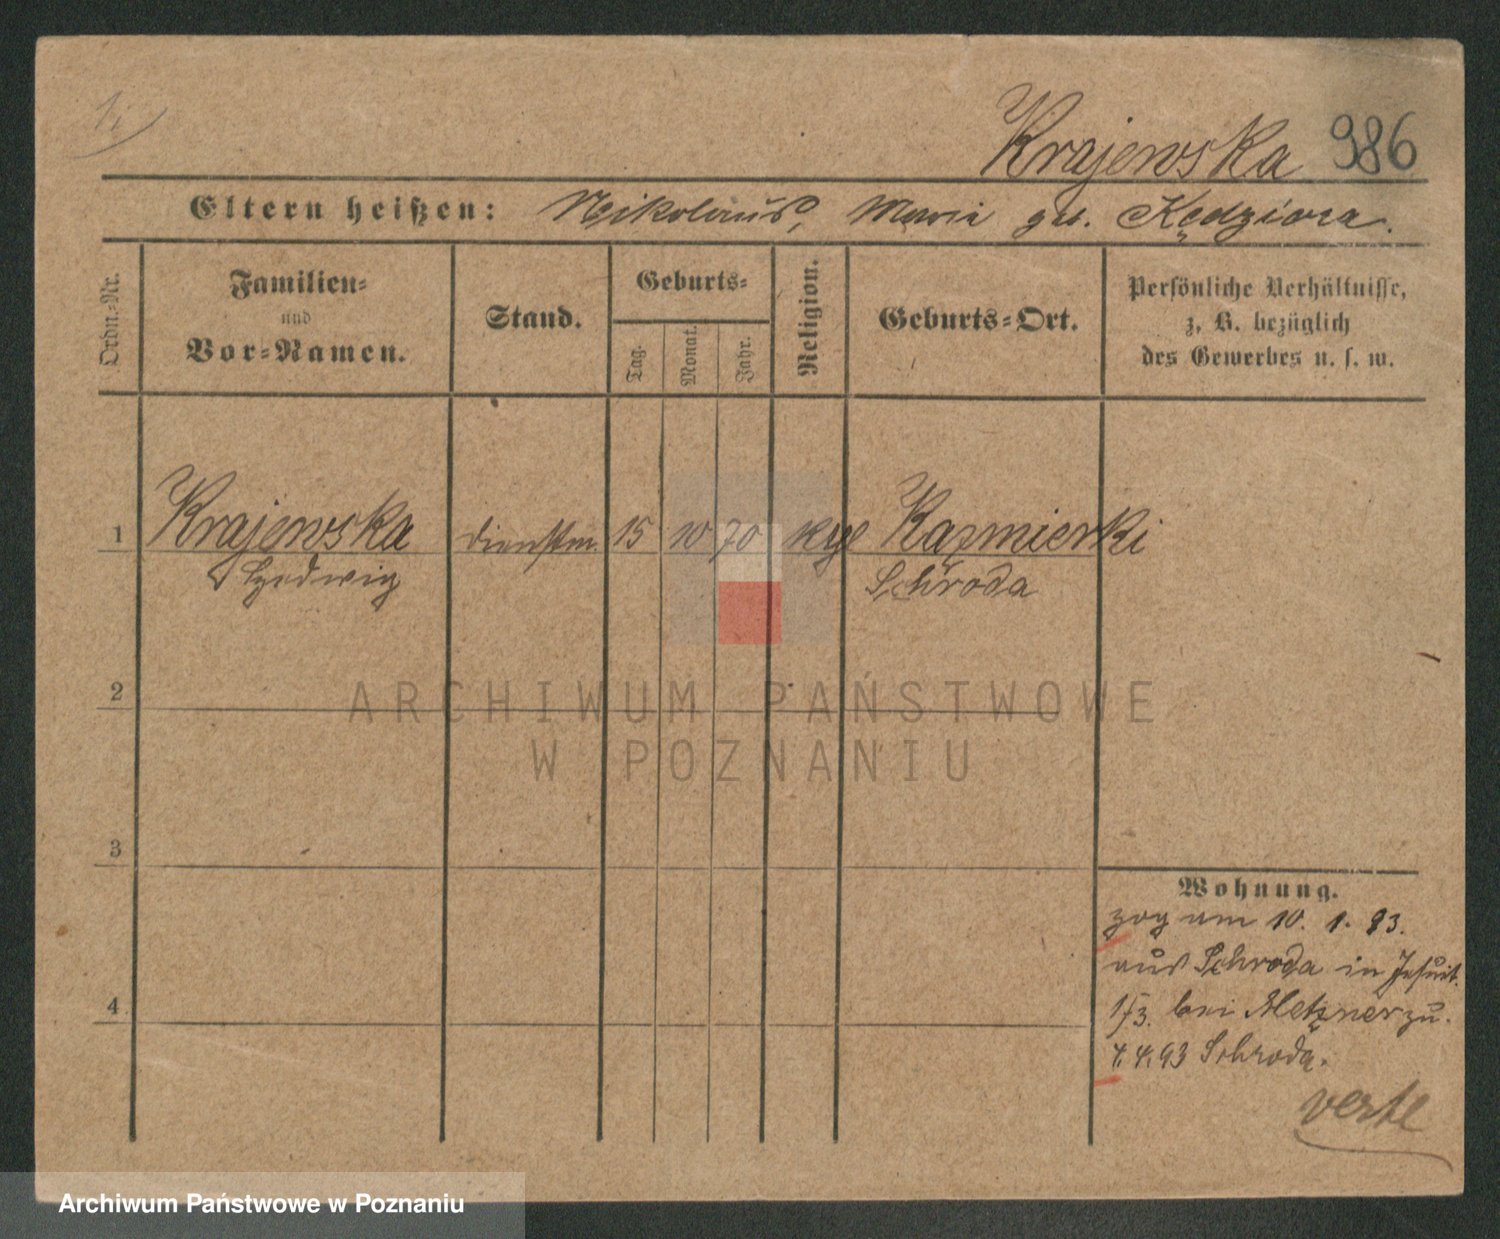 Krajewska 986
Eltern heißen: Nikolaus, Maria geb. Kędziora.
Ordn.-Nr.
Familien-
und
Vor-Namen.
Stand.
Geburts-
Tag.
Monat.
Jahr.
Religion.
Geburts-Ort.
Persönliche Verhältnisse,
z. B. bezüglich
des Gewerbes u. s. w.
1 Krajewska dienstm. 15 10 70 Kazmierki
Hedwig Schroda
2
ARCHIWUM PAŃSTWOWE
W POZNANIU
3
Wohnung.
zog am 10. 1. 93.
aus Schroda in Jesuit.
4
1/3. bei Metzner zu.
4. 4. 93 Schroda.
verte
Archiwum Państwowe w Poznaniu